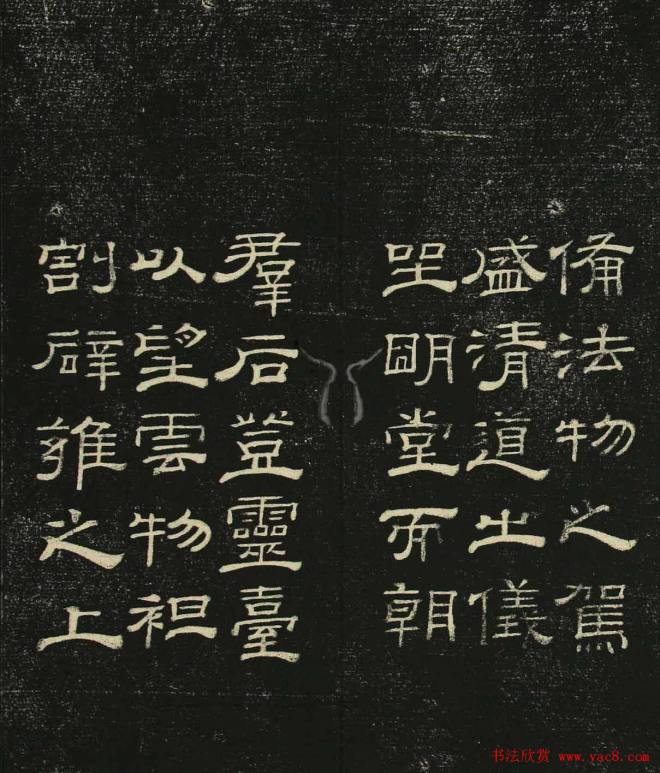 備法物之駕
盛清道之儀
坐明堂而朝
羣后登靈臺
以望雲物袒
割辟雍之上
书法欣赏 www.yac8.com